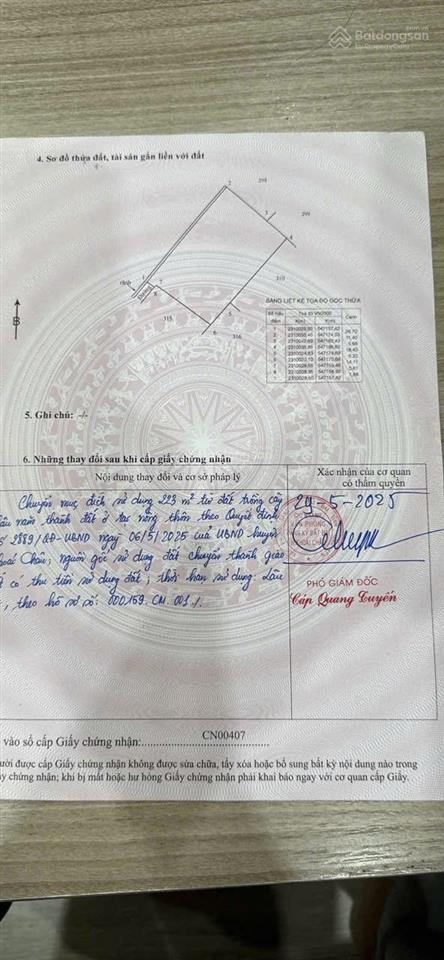 Batdongsan
by PropertyGuru
4. Sơ đồ thửa đất, tài sản gắn liền với đất
2
298
3
299
4
rãnh
Đường
1
7
8
310
5
315
6
316
B
BẢNG LIỆT KÊ TỌA ĐỘ GÓC THỬA
Số hiệu điểm
Tọa độ VN2000
X(m)
Y(m)
Cạnh
5. Ghi chú: -/-
6. Những thay đổi sau khi cấp giấy chứng nhận
Nội dung thay đổi và cơ sở pháp lý
Xác nhận của cơ quan
có thẩm quyền
Chuyển mục đích sử dụng 223 m² từ đất trồng cây
lâu năm thành đất ở tại nông thôn theo Quyết định
2889/QĐ-UBND ngày 06/5/2025 của UBND huyện
Khoái Châu; nguồn gốc sử dụng đất chuyển thành giao
có thu tiền sử dụng đất; thời hạn sử dụng: Lâu
, theo hồ sơ số: 000159.CN.001./.
29-5-2025
PHÓ GIÁM ĐỐC
Cáp Quang Tuyến
vào sổ cấp Giấy chứng nhận: CN00407
ười được cấp Giấy chứng nhận không được sửa chữa, tẩy xóa hoặc bổ sung bất kỳ nội dung nào trong
ấy chứng nhận; khi bị mất hoặc hư hỏng Giấy chứng nhận phải khai báo ngay với cơ quan cấp Giấy.